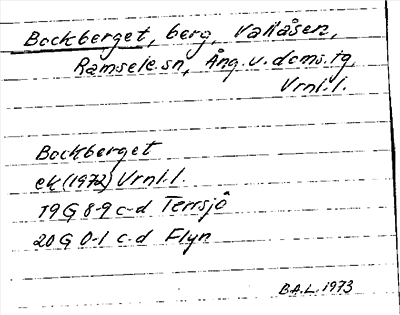 Bockberget, berg, Vallåsen,
Ramsele sn, Ång. v. doms. tg.
Vrnl. l.
Bockberget
ek (1972) Vrnl. l.
19 G 8-9 c-d Terrsjö
20 G 0-1 c-d Flyn
B.A.L. 1973